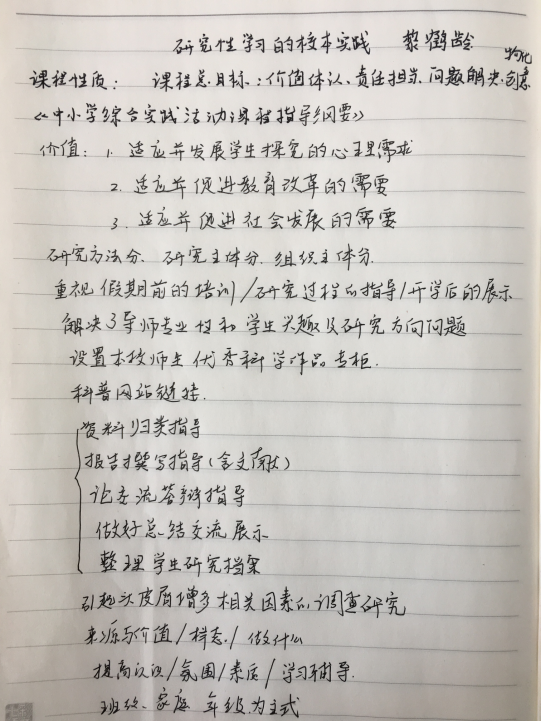 研究性学习的校本实践 黎鹤龄
课程性质： 课程总目标：价值体认、责任担当、问题解决、创意物化
《中小学综合实践活动课程指导纲要》
价值：1. 适应并发展学生探究的心理需求
2. 适应并促进教育改革的需要
3. 适应并促进社会发展的需要
研究方法分、研究主体分、组织主体分.
重视假期前的培训/研究过程的指导/开学后的展示
解决了导师专业性和学生兴趣及研究方向问题
设置本校师生优秀科学作品专柜.
科普网站链接.
资料归类指导
报告撰写指导(含文献)
论交流答辩指导
做好总结交流展示
整理学生研究档案
引起头皮屑增多相关因素的调查研究
来源与价值/样态/做什么
提高认识/氛围/素质/学习辅导.
班级、家庭 年级为主式